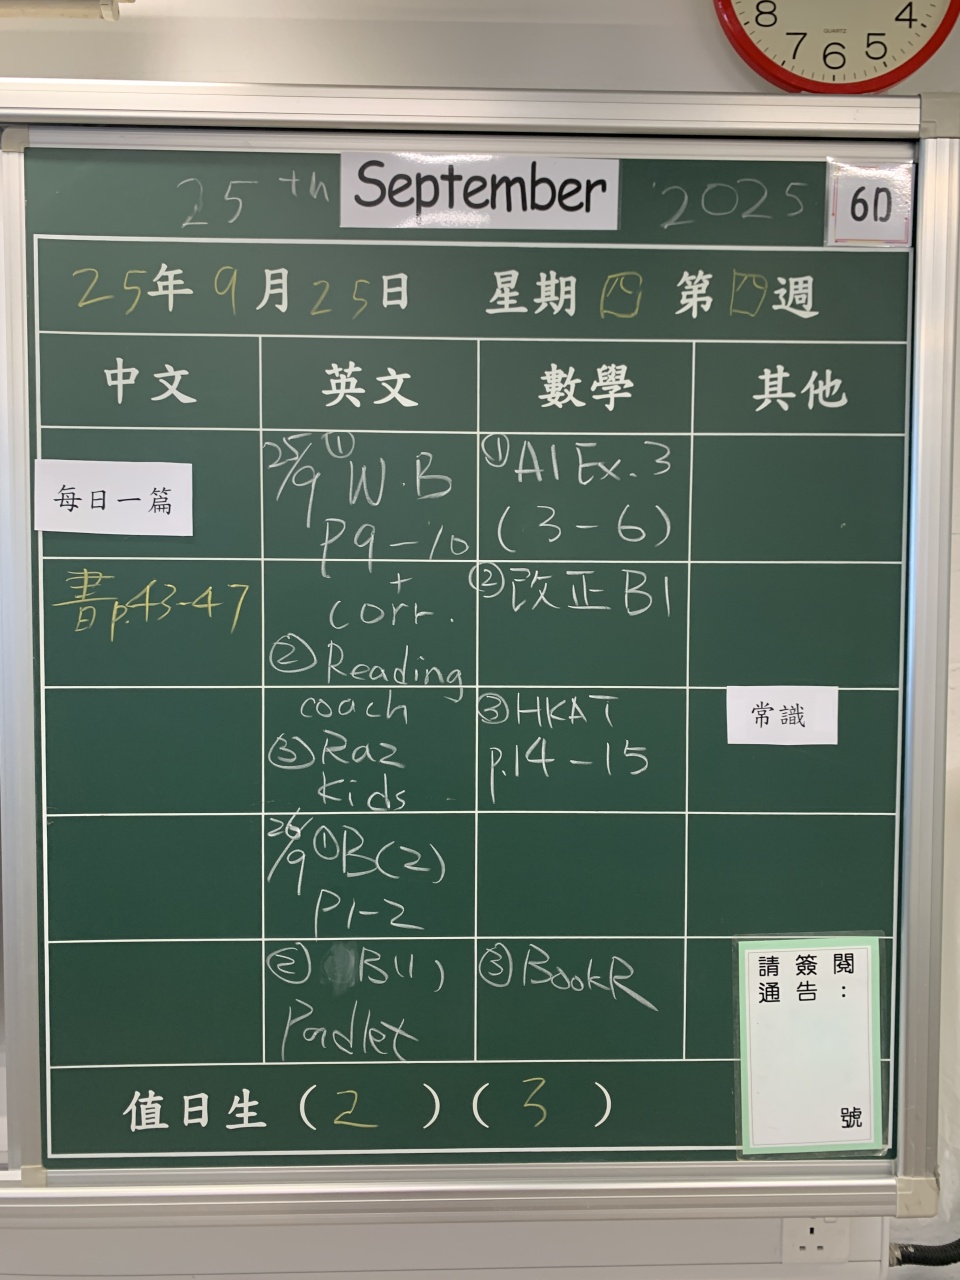 8 7 6 5 4
QUARTZ
25th September 2025 6D
25年9月25日 星期四 第四週
中文 英文 數學 其他
每日一篇
書p.43-47
25/9 ① W.B
P9-10
+
corr.
② Reading
coach
③ Raz
Kids
26/9 ① B(2)
P1-2
② B(1)
Padlet
① A1 Ex.3
(3-6)
② 改正 B1
③ HKAT
p.14-15
③ BookR
常識
請簽閱
通告:
號
值日生(2)(3)